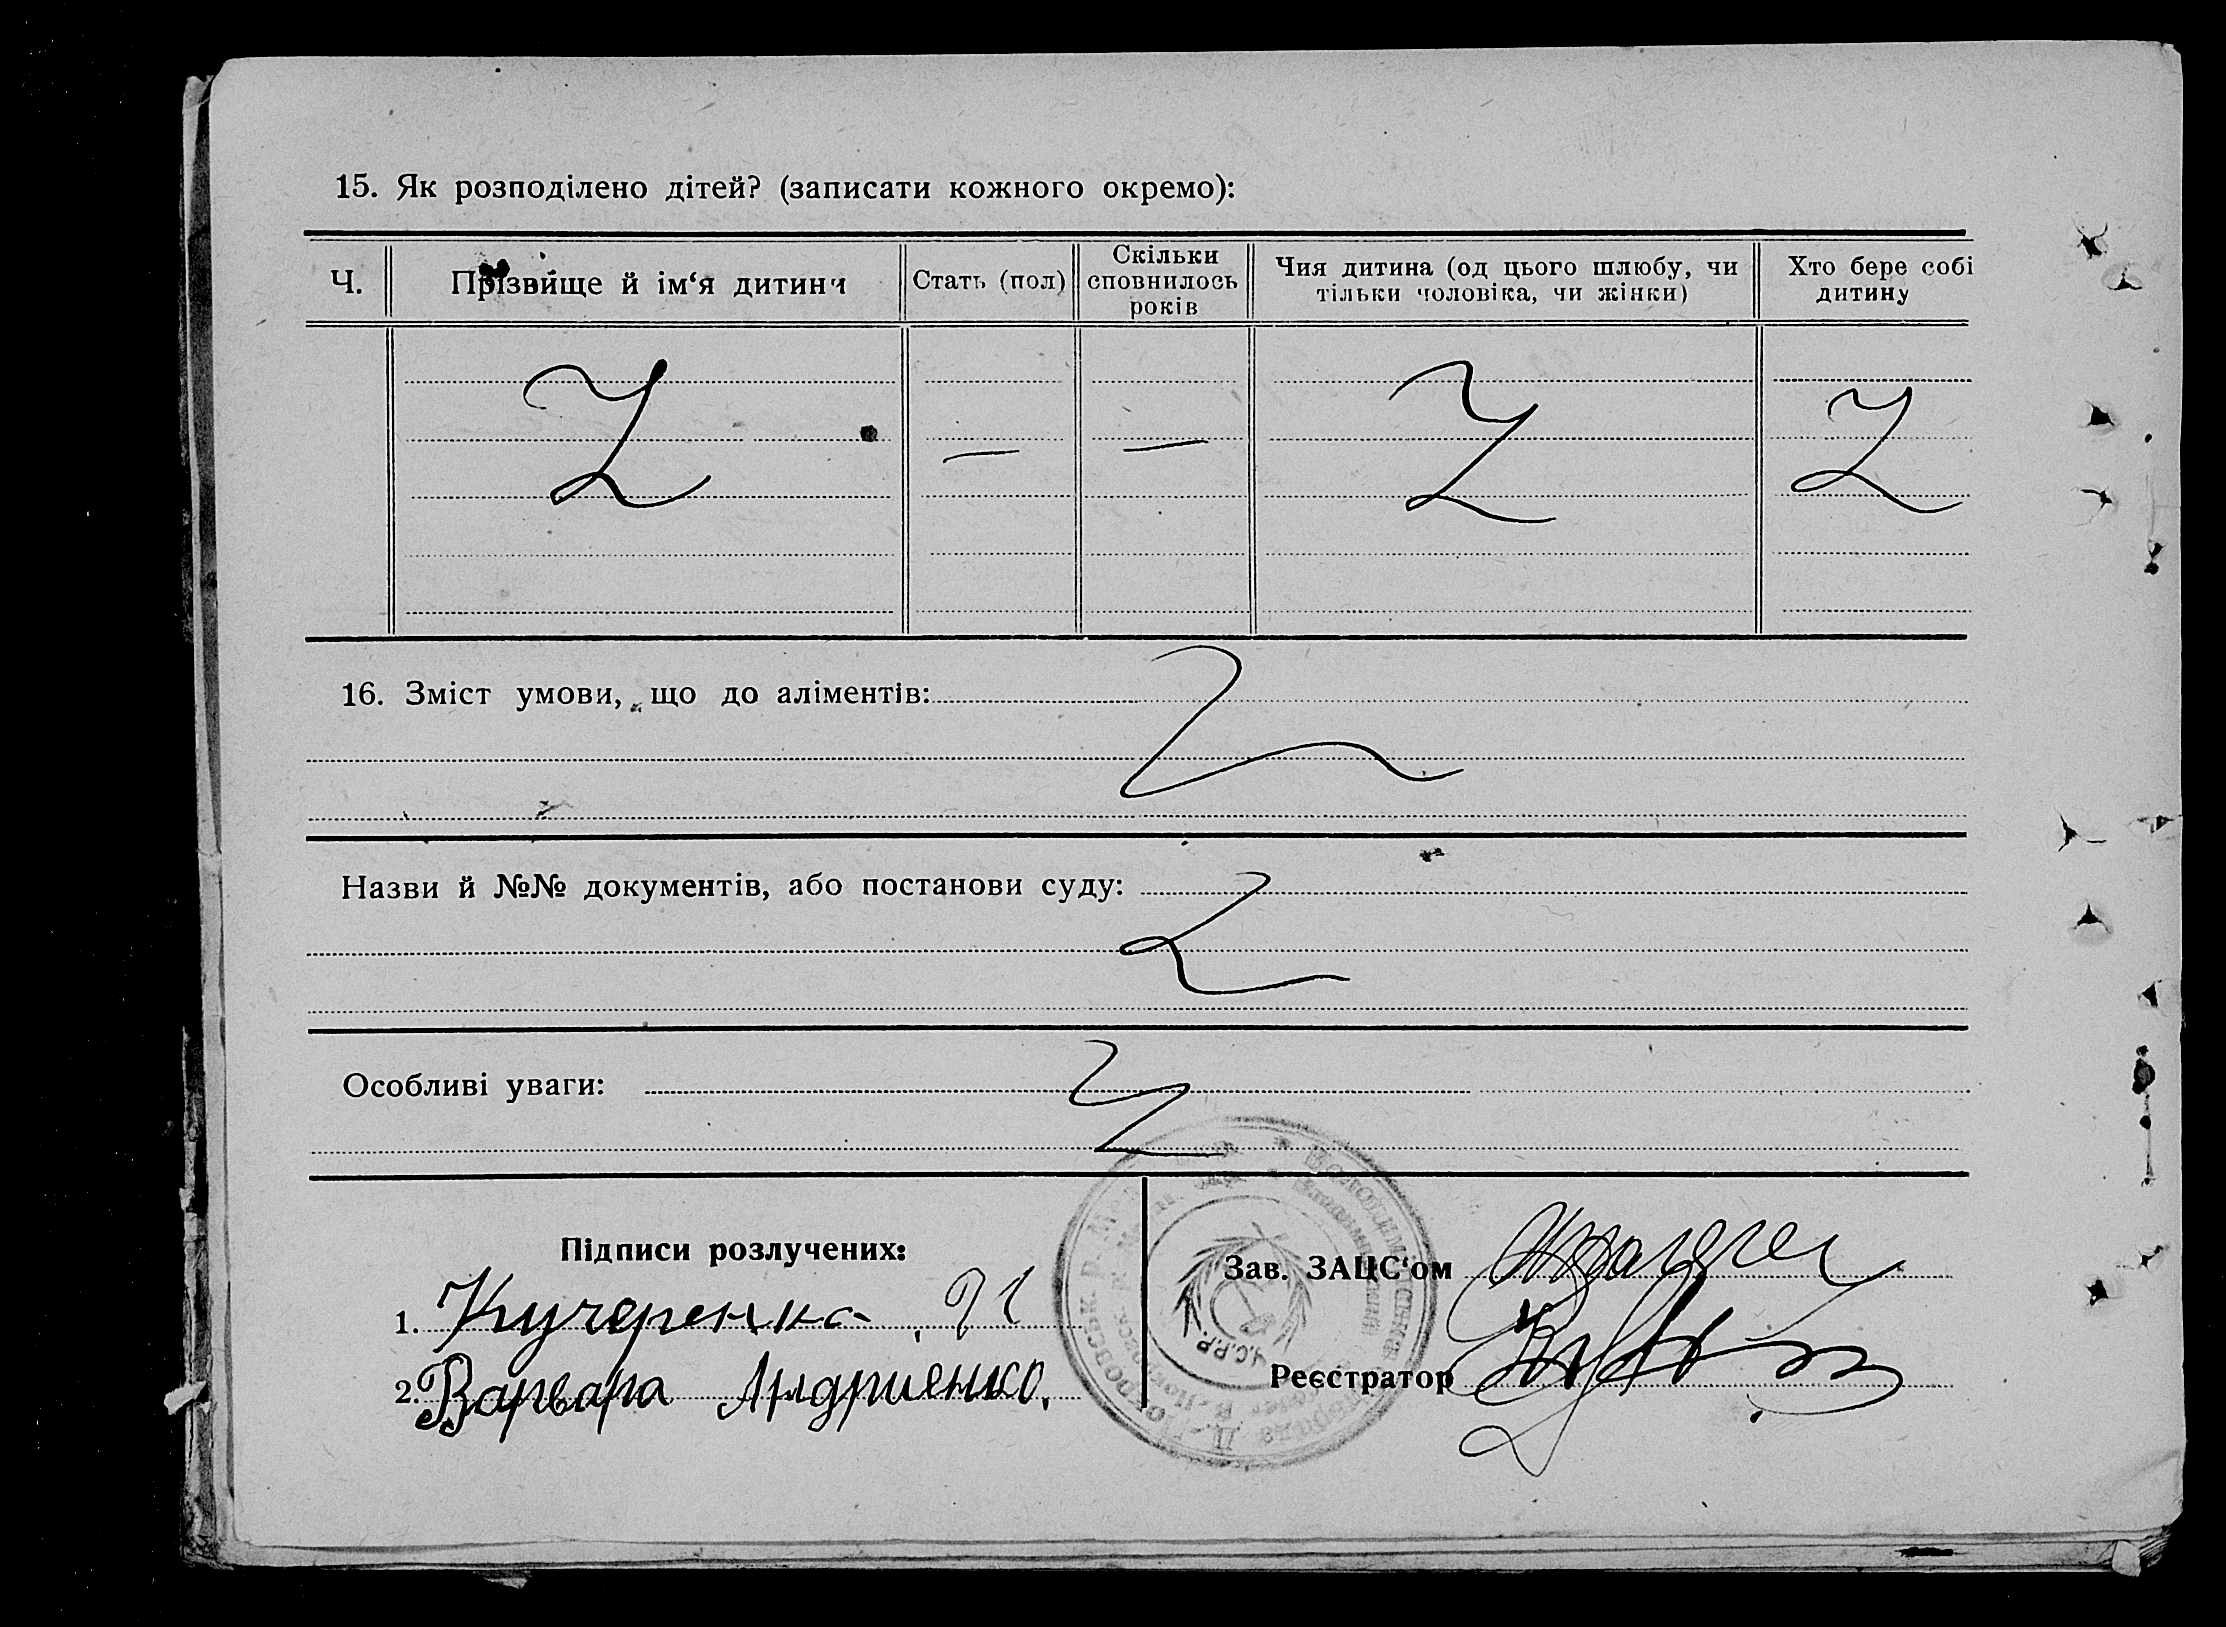 15. Як розподілено дітей? (записати кожного окремо):
Ч.
Прізвище й ім‘я дитини
Стать (пол)
Скільки сповнилось років
Чия дитина (од цього шлюбу, чи тільки чоловіка, чи жінки)
Хто бере собі дитину
16. Зміст умови, що до аліментів:
Назви й №№ документів, або постанови суду:
Особливі уваги:
Підписи розлучених:
1. Кучеренко
2. Варвара Андриенко.
Зав. ЗАЦС‘ом
Реєстратор